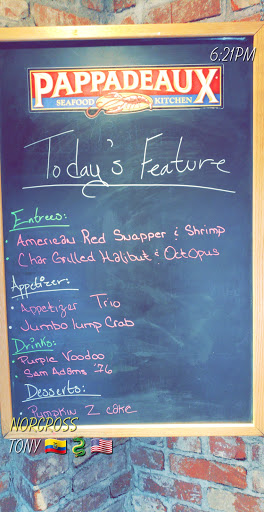 6:21PM
PAPPADEAUX
SEAFOOD KITCHEN
Today's Feature
Entrees:
• American Red Snapper & Shrimp
• Char Grilled Halibut & Octopus
Appetizer:
• Appetizer Trio
• Jumbo lump Crab
Drinks:
• Purple Voodoo
• Sam Adams '76
Desserts:
• Pumpkin Z cake
NORCROSS
TONY 🇪🇨🐉🇺🇸